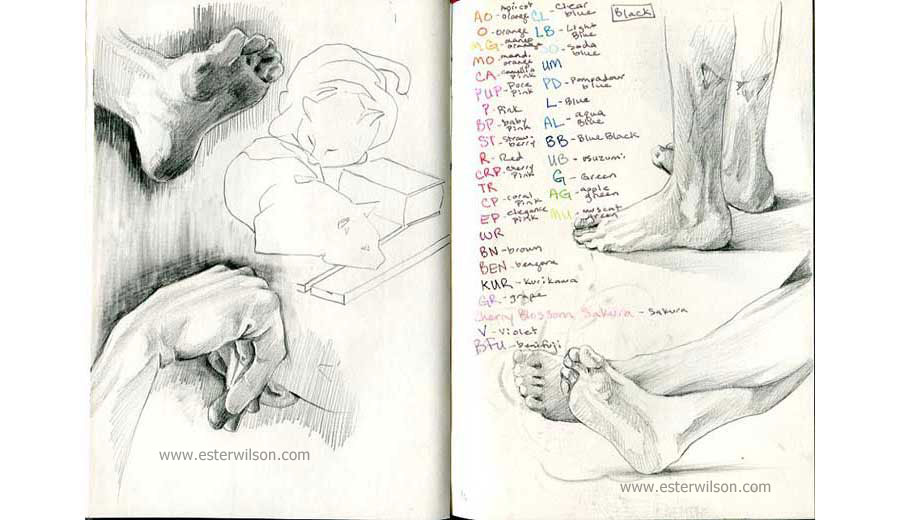 www.esterwilson.com
AO - apricot
orange
O - orange
MG - mango
orange
MO - mand.
orange
CA - camellia
pink
PUP - Pure
pink
P - Pink
BP - baby
pink
ST - straw-
berry
R - Red
CRP - cherry
pink
TR
CP - coral
pink
EP - elegance
pink
WR
BN - brown
BEN - bengara
KUR - Kurikawa
GR - grape
Cherry Blossom Sakura - Sakura
V - Violet
BFU - benifuji
CL - Clear
blue
LB - Light
Blue
SO - Soda
blue
UM
PD - Pompadour
blue
L - Blue
AL - aqua
Blue
BB - Blue Black
UB -
G - Green
AG - apple
green
MU - muscat
green
Black
www.esterwilson.com